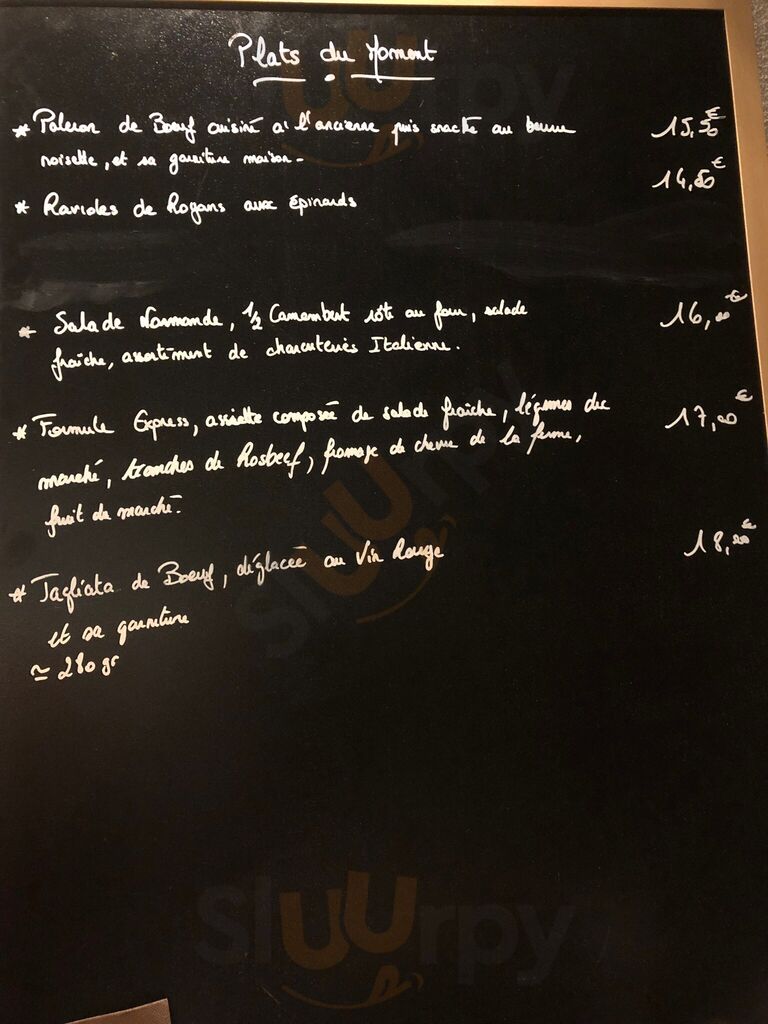 Plats du Moment
* Paleron de Boeuf cuisiné à l'ancienne puis snacké au beurre 15,50€
noisette, et sa garniture maison.
* Ravioles de Rogans aux épinards 14,50€
* Salade Normande, 1/2 Camembert rôti au four, salade 16,00€
fraîche, assortiment de charcuteries Italienne.
* Formule Express, assiette composée de salade fraîche, légumes du 17,00€
marché, tranches de Rosbeef, fromage de chèvre de la ferme,
fruit du marché.
* Tagliata de Boeuf, déglacée au Vin Rouge 18,00€
et sa garniture
≃ 280 gr
Sluurpy
Sluurpy
Sluurpy